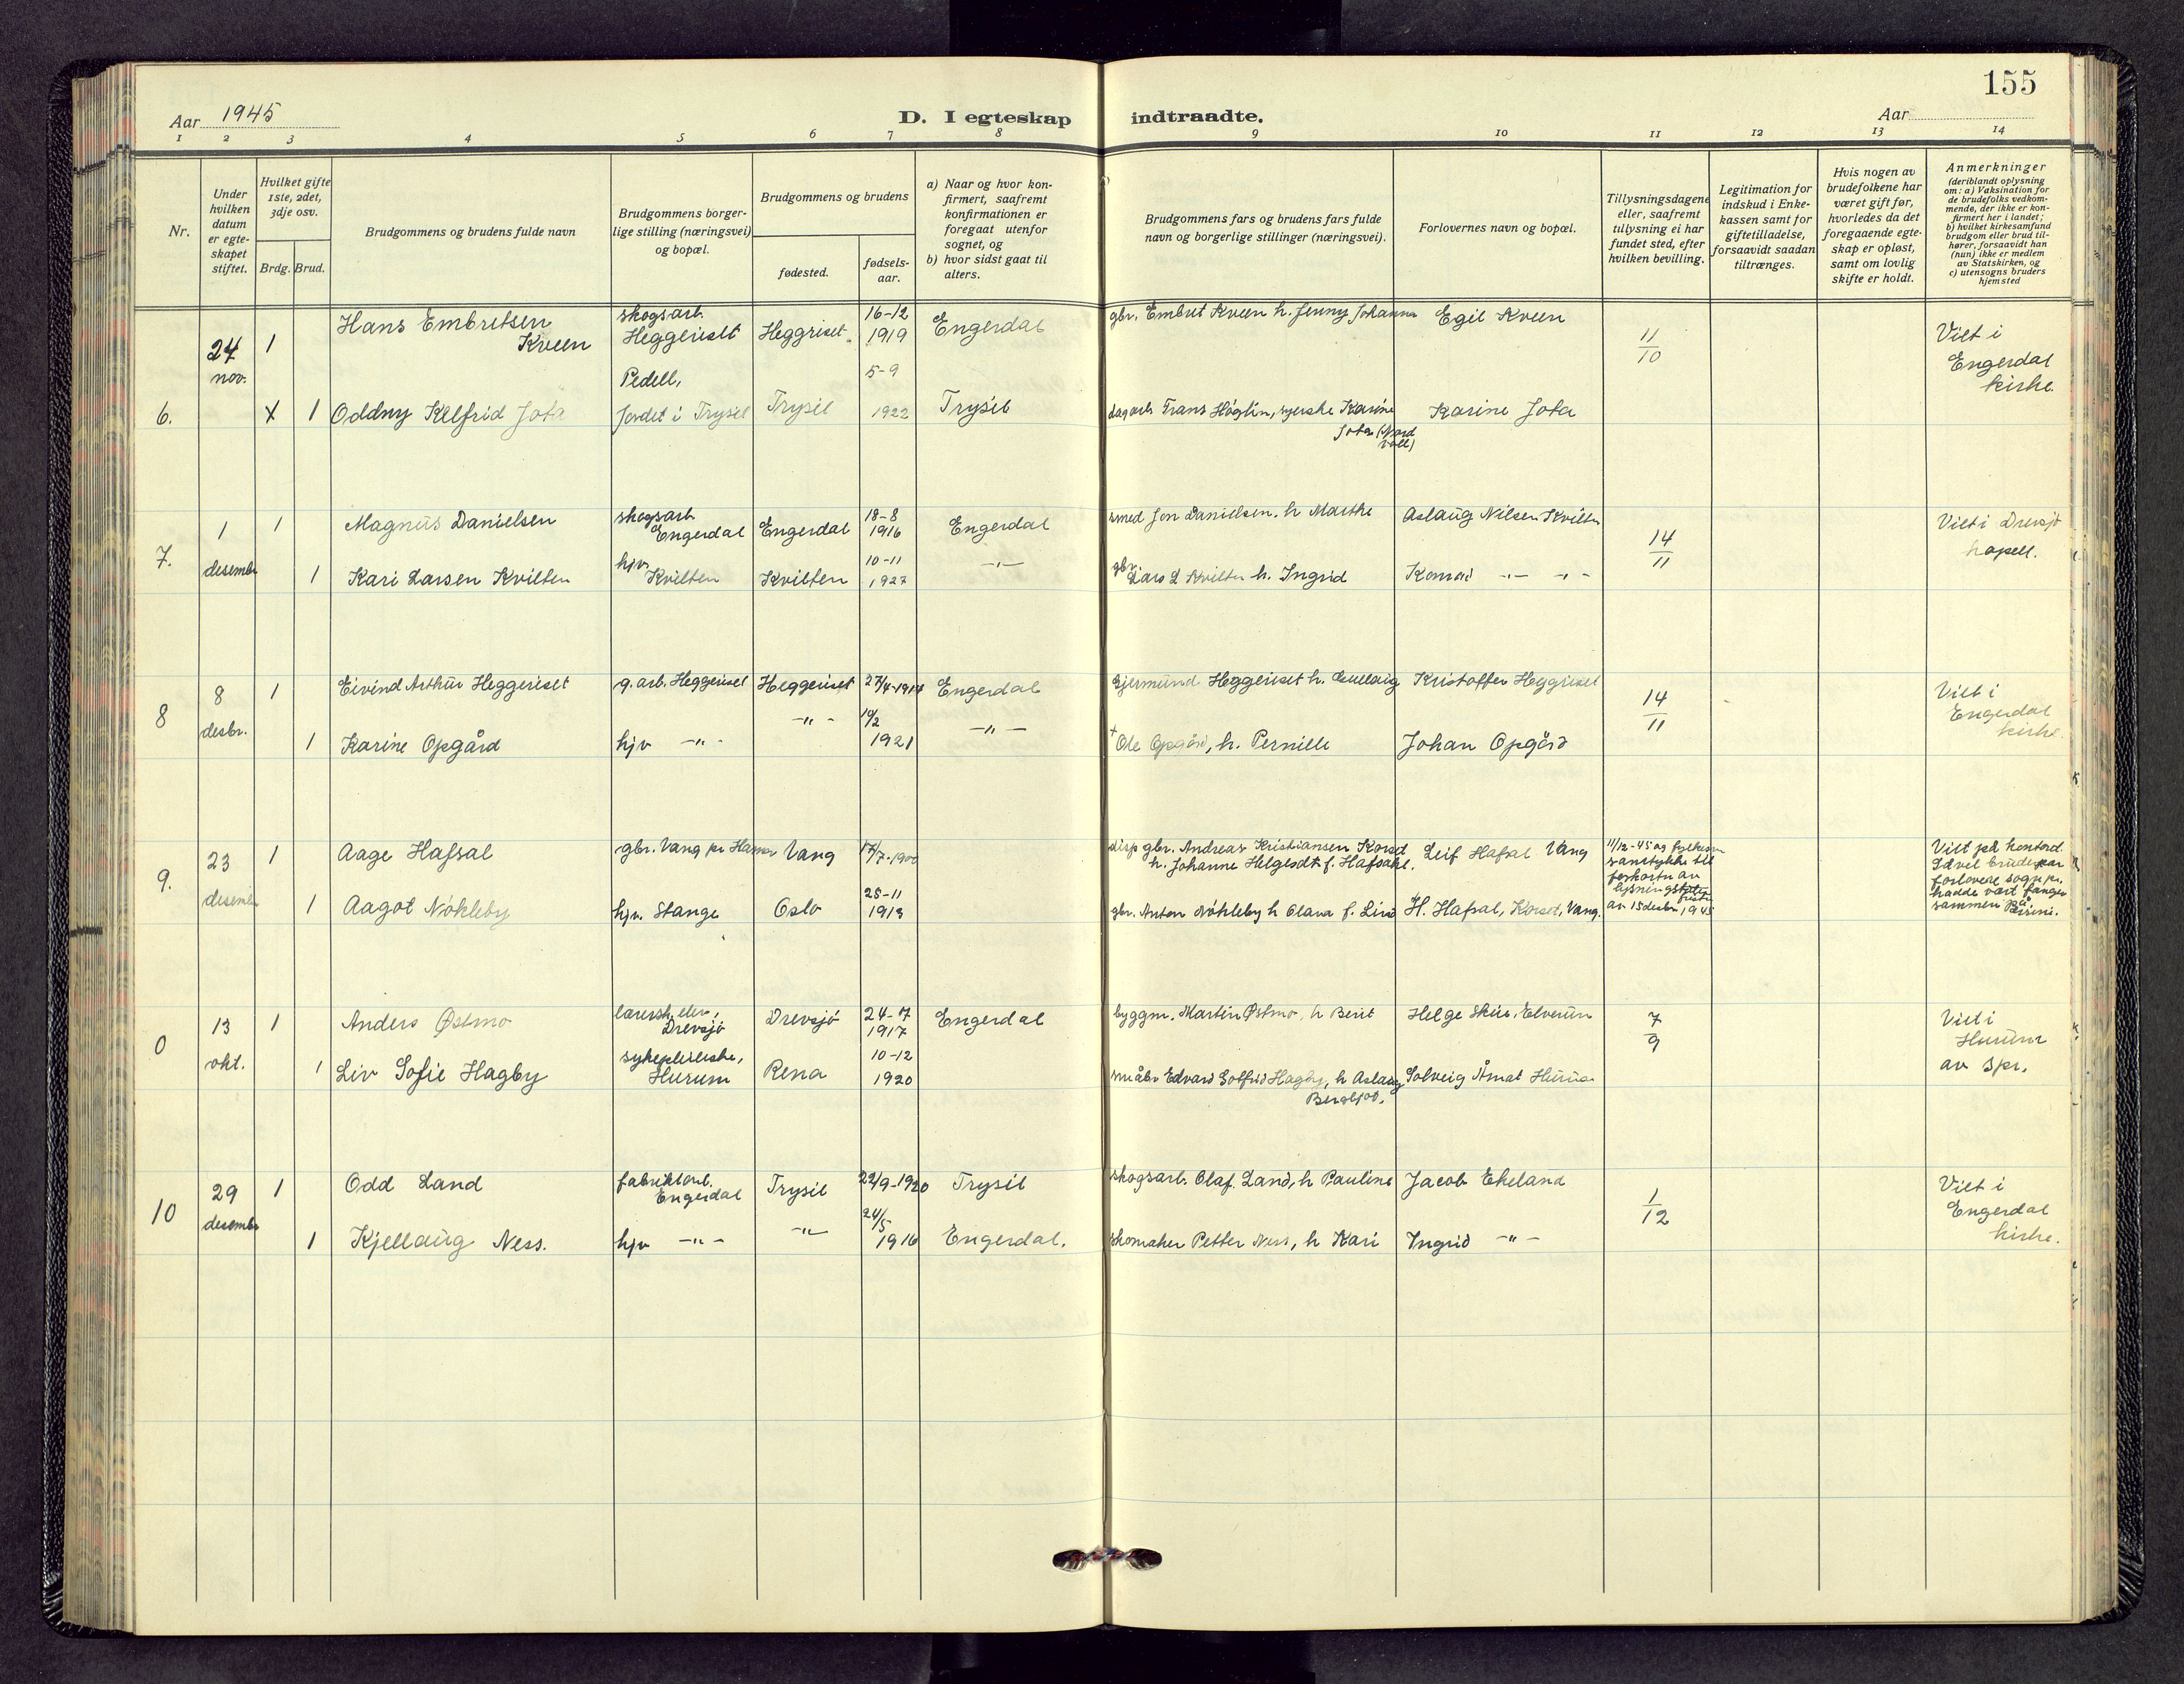 155
Aar 1945
D. I egteskap indtraadte.
Aar
1 2 3 4 5 6 7 8 9 10 11 12 13 14
Nr.
Under hvilken datum er egteskapet stiftet.
Hvilket gifte 1ste, 2det, 3dje osv.
Brdg. Brud.
Brudgommens og brudens fulde navn
Brudgommens borgerlige stilling (næringsvei) og bopæl.
Brudgommens og brudens
fødested.
fødselsaar.
a) Naar og hvor konfirmert, saafremt konfirmationen er foregaat utenfor sognet, og
b) hvor sidst gaat til alters.
Brudgommens fars og brudens fars fulde navn og borgerlige stillinger (næringsvei).
Forlovernes navn og bopæl.
Tillysningsdagene eller, saafremt tillysning ei har fundet sted, efter hvilken bevilling.
Legitimation for indskud i Enkekassen samt for giftetilladelse, forsaavidt saadan tiltrænges.
Hvis nogen av brudefolkene har været gift før, hvorledes da det foregaaende egteskap er opløst, samt om lovlig skifte er holdt.
Anmerkninger (deriblandt oplysning om: a) Vaksination for de brudefolks vedkommende, der ikke er konfirmert her i landet; b) hvilket kirkesamfund brudgom eller brud tilhører, forsaavidt han (nun) ikke er medlem av Statskirken, og c) utensogns bruders hjemsted
6. 24 nov. 1 Hans Embretsen Kveen skogsarb. Heggeriset Heggriset 16-12 1919 Engerdal gbr. Embret Kveen h. Jenny Johanna Egil Kveen 11/10 Viet i Engerdal kirke.
X 1 Oddny Kelfrid Jota Pedell, Jordet i Trysil Trysil 5-9 1922 Trysil Frans Höglin, syerske Karine Jota Karine Jota
7. 1 desembr 1 Magnus Danielsen skogsarb Engerdal Engerdal 18-8 1916 Engerdal smed Jon Danielsen, h Marthe Aslaug Nilsen Kvilten 14/11 Viet i Drevsjø kapell.
1 Kari Larsen Kvilten hjv. Kvilten Kvilten 10-11 1927 -"- gbr. Lars L Kvilten h. Ingrid Konrad -"- -"-
8 8 desbr. 1 Eivind Arthur Heggeriset g. arb. Heggeriset Heggeriset 27/4-1914 Engerdal Gjermund Heggeriset h. Kristoffer Heggriset 14/11 Viet i Engerdal kirke.
1 Karine Opgård hjv -"- -"- 1921 -"- + Ole Opgård, h. Pernille Johan Opgård
9. 23 desemb 1 Aage Hafsal gbr. Vang pr Hamar Vang 17/7-1900 disp gbr. Andreas Kristiansen Korset h. Johanne Helgesdtr f. Hafsahl. Leif Hafsal Vang 11/12-45 og fylkesm samtykke til forkortn av lysningsfristen av 15 desbr 1945 Viet på kontord. Såvel brudepar forlovere sogpr. hadde vært fanger sammen på Berg.
1 Aagot Nökleby hjv. Stange Oslo 25-11 1913 gbr. Anton Nökleby h Olava f. Lire H. Hafsal, Korset, Vang.
0 13 okt. 1 Anders Østmo lærersk. elev, Drevsjö Drevsjö 24-7 1917 Engerdal byggm. Martin Østmo, h Berit Helge Skur, Elverum 7/9 Viet i Hurum av spr.
1 Liv Sofie Hagby sykepleierske, Hurum Rena 10-12 1920 småbr Edvard Golfrid Hagby, h Aslaug Bergljot. Solveig Åmot Hurum
10 29 desembr 1 Odd Land fabrikkarb. Engerdal Trysil 22/9-1920 Trysil skogsarb. Olaf Land, h Pauline Jacob Ekeland 1/12 Viet i Engerdal kirke.
1 Kjellaug Ness. hjv -"- -"- 24/5 1916 Engerdal. skomaker Petter Ness, h Kari Ingrid -"-